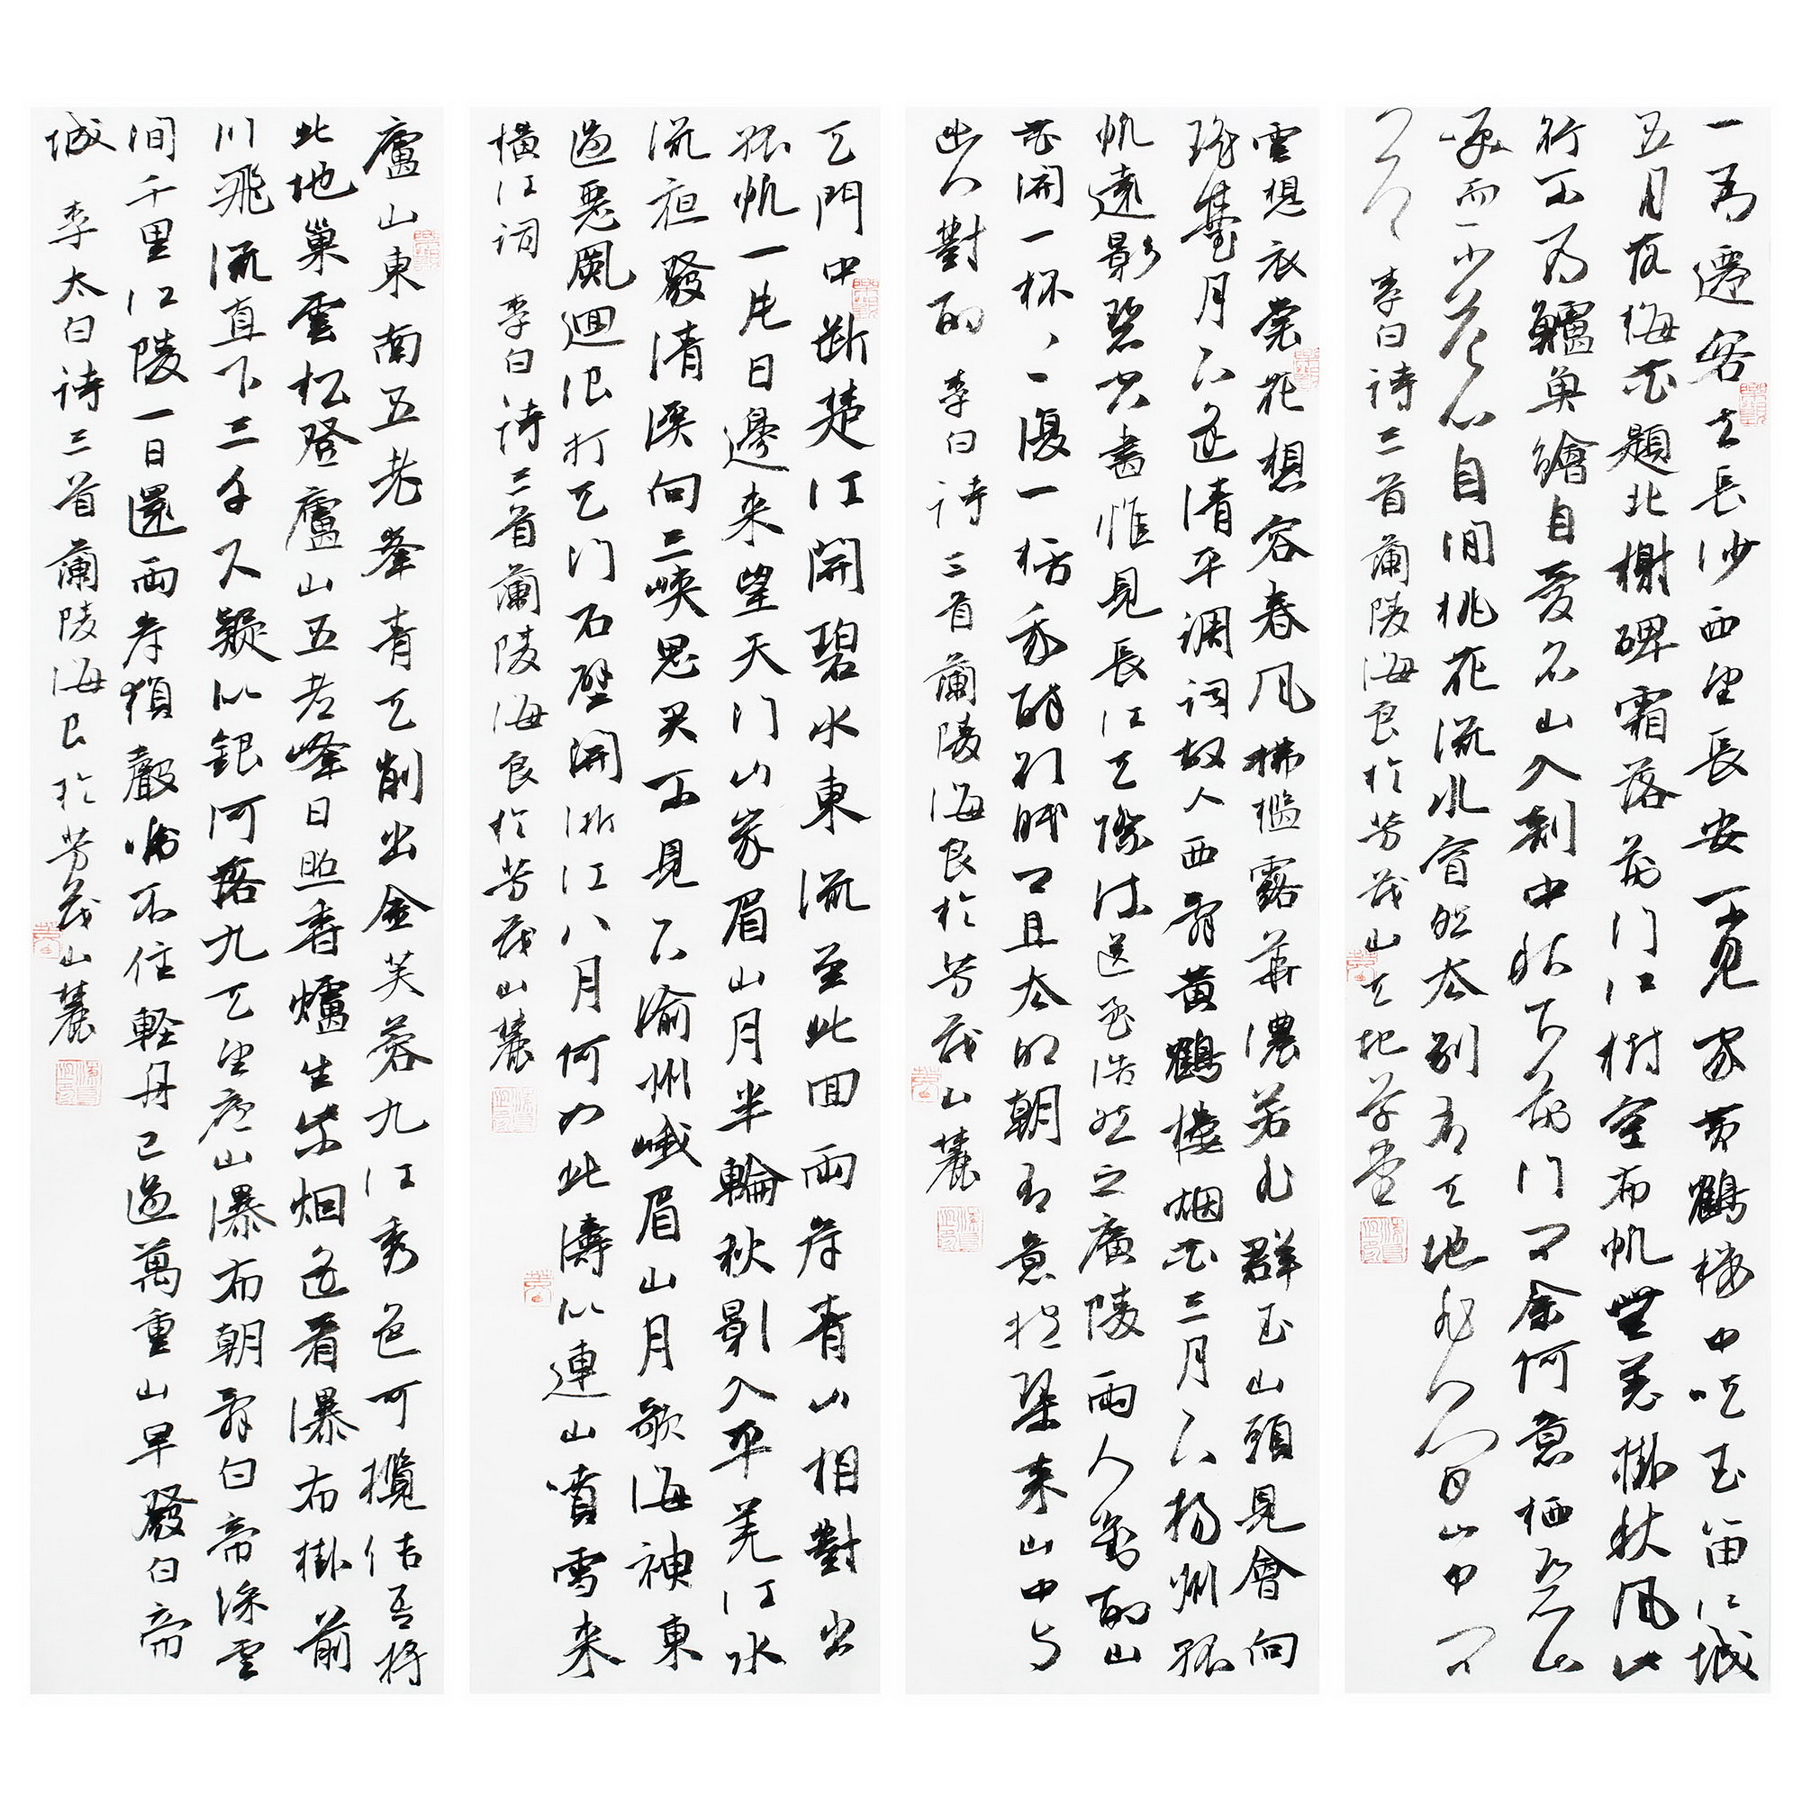 一为遷客去長沙西望長安不見家黄鶴楼中吹玉笛江城
五月落梅花題北榭碑霜落荆门江樹空布帆無恙掛秋风此
行不为鱸魚鱠自愛名山入剡中秋下荆门问余何意栖碧山
笑而不答心自閒桃花流水窅然去别有天地非人间山中问
答 李白诗三首蘭陵海良於芳茂山天地草堂
雲想衣裳花想容春风拂檻露華濃若非群玉山頭見會向
瑶臺月下逢清平調词故人西辞黄鶴樓烟花三月下扬州孤
帆遠影碧空盡惟見長江天際流送孟浩然之廣陵兩人對酌山
花開一杯、、復一杯我醉欲眠卿且去明朝有意抱琴来山中与
幽人對酌 李白诗三首蘭陵海良於芳茂山麓
天門中断楚江開碧水東流至此回兩岸青山相對出
孤帆一片日邊来望天门山峩眉山月半輪秋影入平羌江水
流夜發清溪向三峡思君不見下渝州峨眉山月歌海神東
過惡風迴浪打天门石壁開浙江八月何如此濤似連山噴雪来
横江词 李白诗三首蘭陵海良於芳茂山麓
廬山東南五老峯青天削出金芙蓉九江秀色可攬结吾将
此地巢雲松登廬山五老峰日照香爐生紫烟遥看瀑布掛前
川飛流直下三千尺疑似銀河落九天望庐山瀑布朝辞白帝彩雲
间千里江陵一日還兩岸猿聲啼不住輕舟已過萬重山早發白帝
城 李太白诗三首蘭陵海良於芳茂山麓